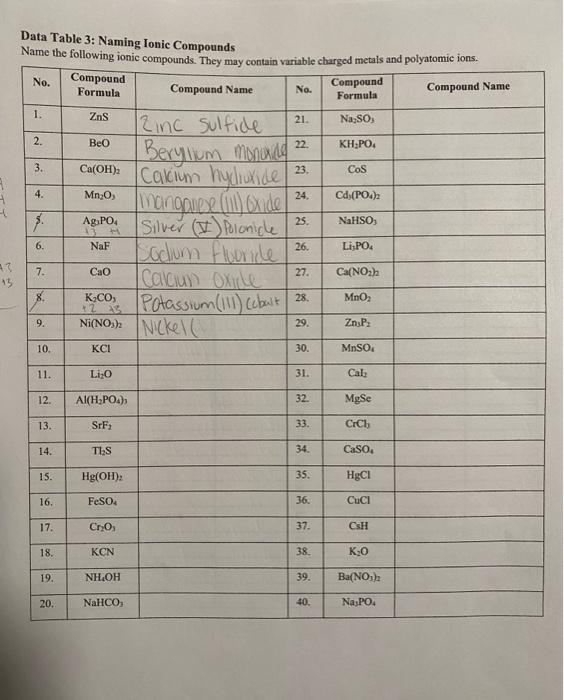 Data Table 3: Naming Ionic Compounds
Name the following ionic compounds. They may contain variable charged metals and polyatomic ions.
No. Compound Formula Compound Name No. Compound Formula Compound Name
1. ZnS Zinc sulfide 21. Na₂SO₃
2. BeO Beryllium monoxide 22. KH₂PO₄
3. Ca(OH)₂ Calcium hydroxide 23. CoS
4. Mn₂O₃ manganese (III) Oxide 24. Cd₃(PO₄)₂
5. Ag₃PO₄ Silver (I) Polonide 25. NaHSO₃
6. NaF Sodium fluoride 26. Li₃PO₄
7. CaO Calcium oxide 27. Ca(NO₂)₂
8. K₂CO₃ Potassium(III) Cobalt 28. MnO₂
+2 +3
9. Ni(NO₃)₂ Nickel ( 29. Zn₃P₂
10. KCl 30. MnSO₄
11. Li₂O 31. CaI₂
12. Al(H₂PO₄)₃ 32. MgSe
13. SrF₂ 33. CrCl₃
14. Tl₂S 34. CaSO₄
15. Hg(OH)₂ 35. HgCl
16. FeSO₄ 36. CuCl
17. Cr₂O₃ 37. CsH
18. KCN 38. K₂O
19. NH₄OH 39. Ba(NO₃)₂
20. NaHCO₃ 40. Na₃PO₄